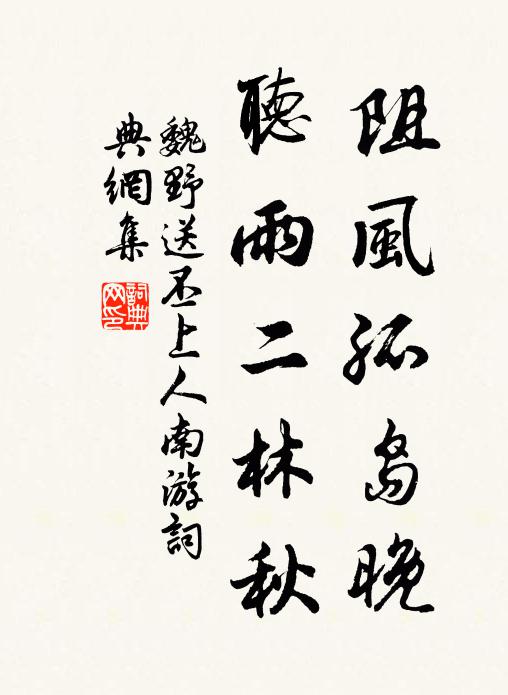 阻風孤島晚
聽雨二林秋
魏野送丕上人南游詞
典網集
詞典
网印